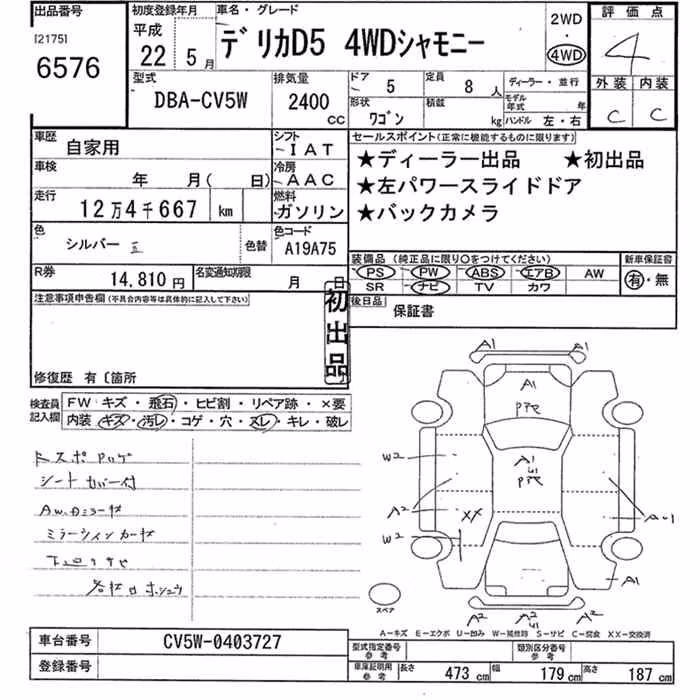 出品番号
[2175]
6576
初度登録年月
平成
22 5月
車名・グレード
デリカD5 4WDシャモニー
2WD
・
4WD
評価点
4
外装 内装
C C
型式
DBA-CV5W
排気量
2400
CC
ドア 5
定員 8人
形状 ワゴン
積載 kg
ディーラー・並行
モデル年式 年
ハンドル 左・右
車歴 自家用
シフト IAT
車検 年 月( 日)
冷房 AAC
走行 12万4千667 km
燃料 ガソリン
色 シルバー
色替
色コード A19A75
R券 14,810円
名変通知期限 月 日
セールスポイント(正常に機能するものに限ります)
★ディーラー出品 ★初出品
★左パワースライドドア
★バックカメラ
装備品(純正品に限り○をつけてください)
新車保証書
PS PW ABS エアB AW
SR ナビ TV カワ
有・無
後日品 保証書
注意事項申告欄(不具合内容等は具体的に記入して下さい)
初出品
修復歴 有〔箇所
検査員記入欄
FW キズ・飛石・ヒビ割・リペア跡・×要
内装 キズ・汚レ・コゲ・穴・スレ・キレ・破レ
シートカバー付
A1 A1
A1
W2
A1
U1
A2
XX
W2
A1
A2 A2 A2
U1
スペア
A-キズ E-エクボ U-凹み W-補修跡 S-サビ C-腐食 XX-交換済
車台番号 CV5W-0403727
登録番号
型式指定番号 参考
類別区分番号 参考
車庫証明用 参考
長さ 473cm 幅 179cm 高さ 187cm